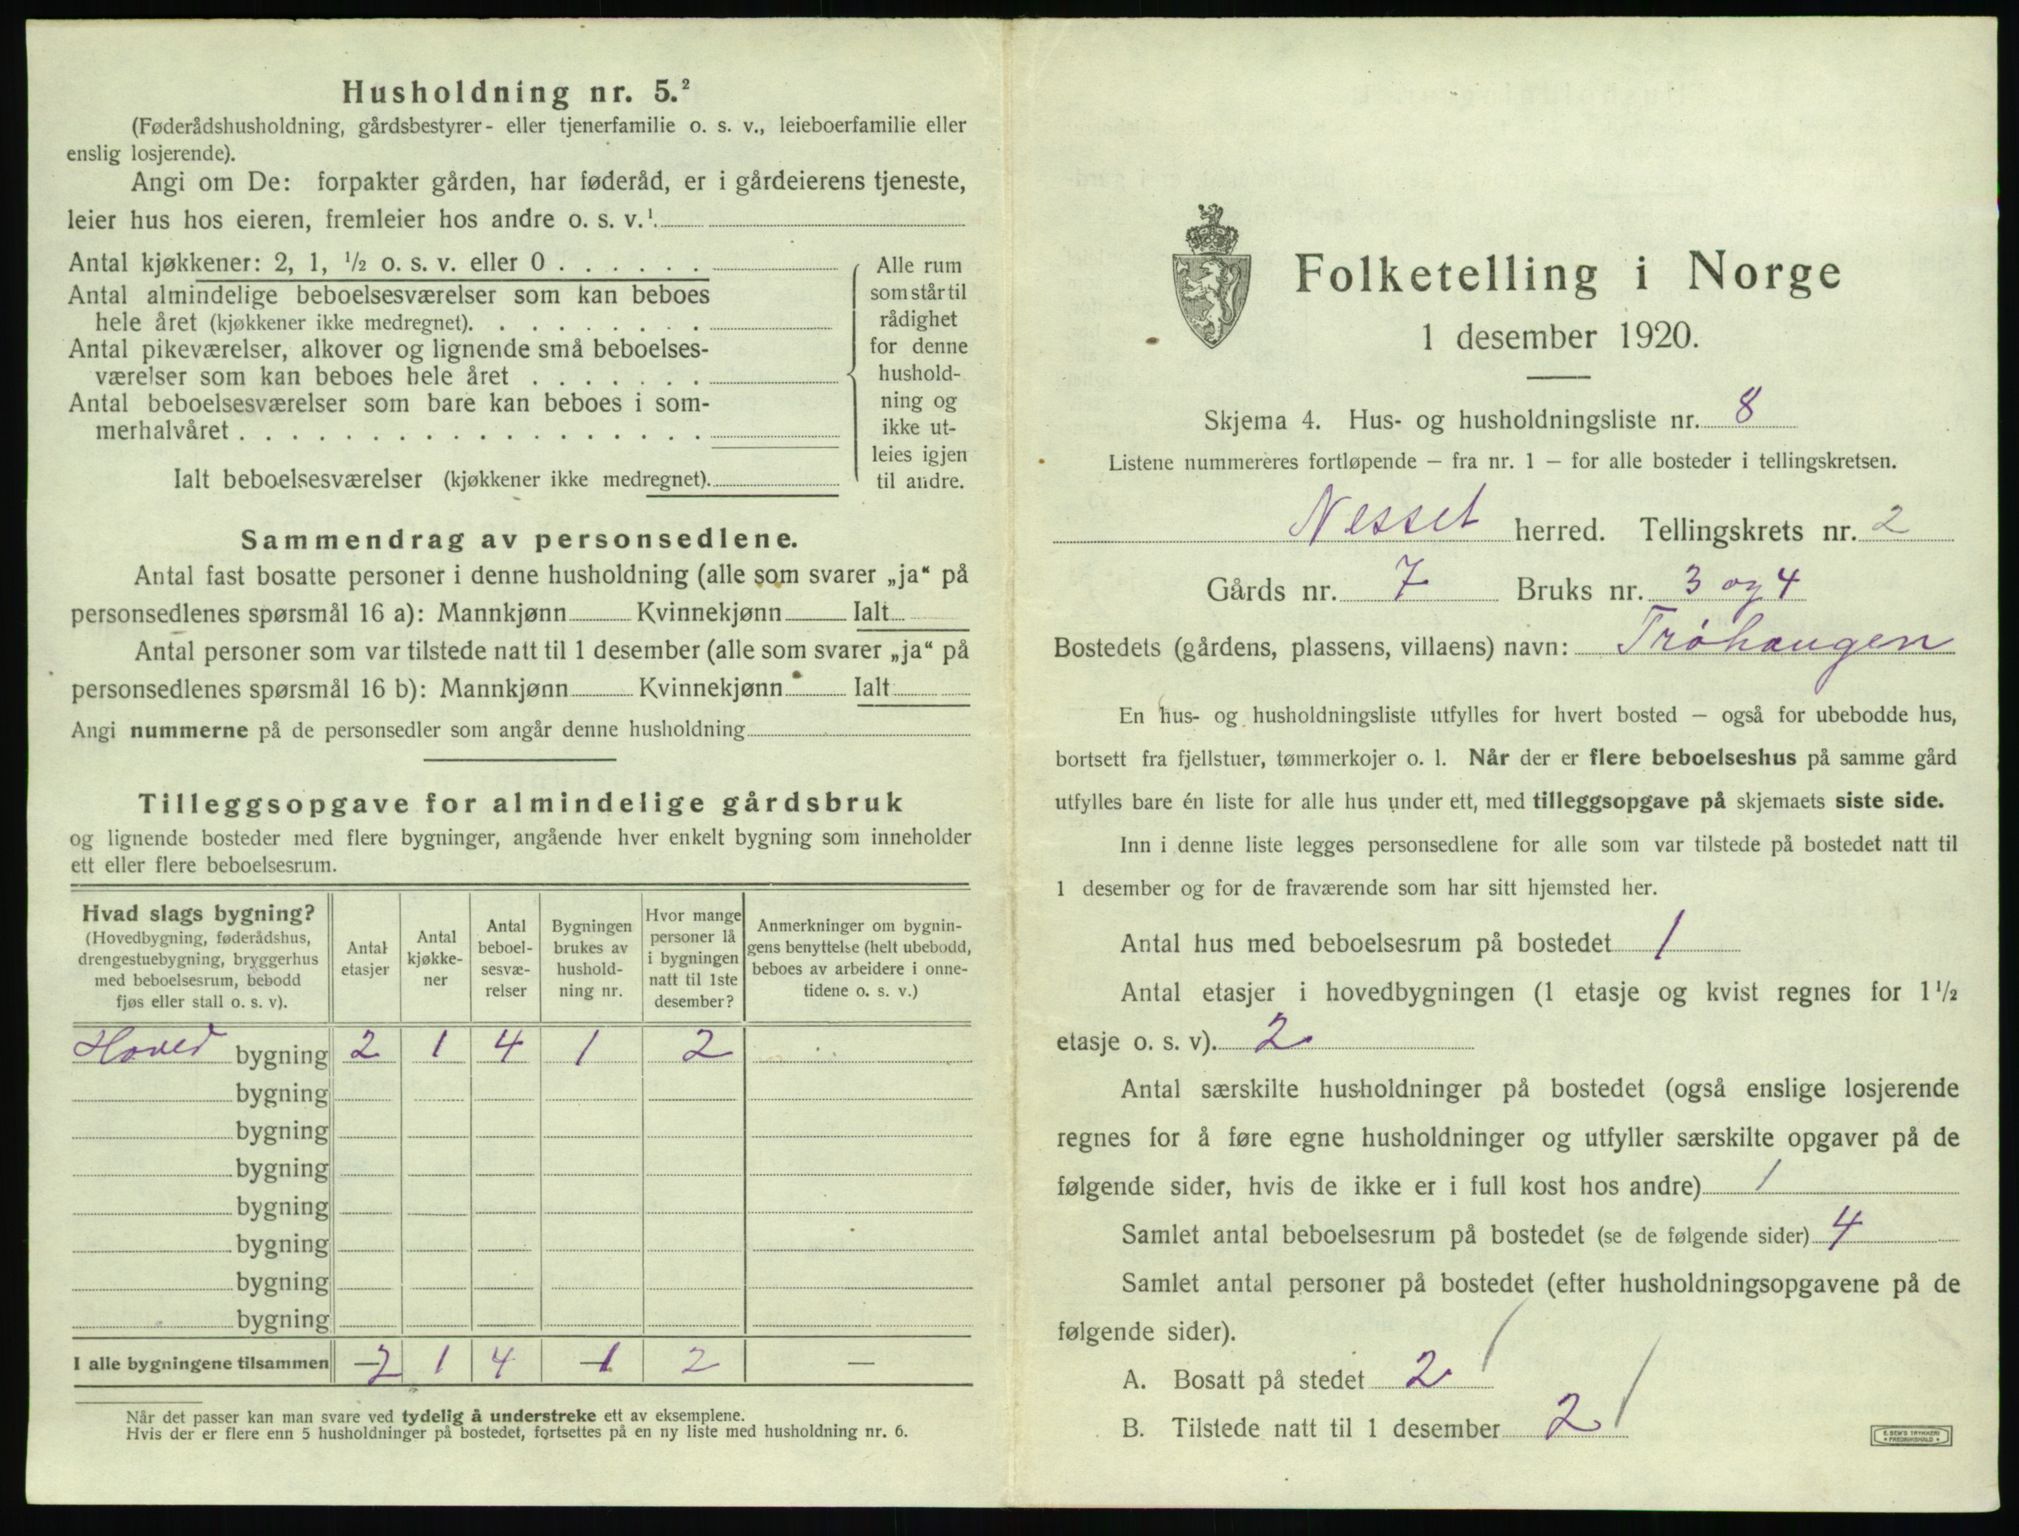 Husholdning nr. 5.²
(Føderådshusholdning, gårdsbestyrer- eller tjenerfamilie o. s. v., leieboerfamilie eller
enslig losjerende).
Angi om De: forpakter gården, har føderåd, er i gårdeierens tjeneste,
leier hus hos eieren, fremleier hos andre o. s. v.¹
Antal kjøkkener: 2, 1, ½ o. s. v. eller 0 . . . . . .
Antal almindelige beboelsesværelser som kan beboes
hele året (kjøkkener ikke medregnet). . . . . . . . .
Antal pikeværelser, alkover og lignende små beboelses-
værelser som kan beboes hele året . . . . . . .
Antal beboelsesværelser som bare kan beboes i som-
merhalvåret . . . . . . . . . . . . . . . . . .
Ialt beboelsesværelser (kjøkkener ikke medregnet).
Alle rum
som står til
rådighet
for denne
hushold-
ning og
ikke ut-
leies igjen
til andre.
Sammendrag av personsedlene.
Antal fast bosatte personer i denne husholdning (alle som svarer „ja“ på
personsedlenes spørsmål 16 a): Mannkjønn Kvinnekjønn Ialt
Antal personer som var tilstede natt til 1 desember (alle som svarer „ja“ på
personsedlenes spørsmål 16 b): Mannkjønn Kvinnekjønn Ialt
Angi nummerne på de personsedler som angår denne husholdning
Tilleggsopgave for almindelige gårdsbruk
og lignende bosteder med flere bygninger, angående hver enkelt bygning som inneholder
ett eller flere beboelsesrum.
Hvad slags bygning?
(Hovedbygning, føderådshus,
drengestuebygning, bryggerhus
med beboelsesrum, bebodd
fjøs eller stall o. s. v).
Antal
etasjer
Antal
kjøkke-
ner
Antal
beboel-
sesvæ-
relser
Bygningen
brukes av
hushold-
ning nr.
Hvor mange
personer lå
i bygningen
natt til 1ste
desember?
Anmerkninger om bygnin-
gens benyttelse (helt ubebodd,
beboes av arbeidere i onne-
tidene o. s. v.)
Hoved bygning 2 1 4 1 2
bygning
bygning
bygning
bygning
bygning
bygning
bygning
I alle bygningene tilsammen 2 1 4 1 2 —
Når det passer kan man svare ved tydelig å understreke ett av eksemplene.
Hvis der er flere enn 5 husholdninger på bostedet, fortsettes på en ny liste med husholdning nr. 6.
Folketelling i Norge
1 desember 1920.
Skjema 4. Hus- og husholdningsliste nr. 8
Listene nummereres fortløpende — fra nr. 1 — for alle bosteder i tellingskretsen.
Nesset herred. Tellingskrets nr. 2
Gårds nr. 7 Bruks nr. 3 og 4
Bostedets (gårdens, plassens, villaens) navn: Trøhaugen
En hus- og husholdningsliste utfylles for hvert bosted — også for ubebodde hus,
bortsett fra fjellstuer, tømmerkojer o. l. Når der er flere beboelseshus på samme gård
utfylles bare én liste for alle hus under ett, med tilleggsopgave på skjemaets siste side.
Inn i denne liste legges personsedlene for alle som var tilstede på bostedet natt til
1 desember og for de fraværende som har sitt hjemsted her.
Antal hus med beboelsesrum på bostedet 1
Antal etasjer i hovedbygningen (1 etasje og kvist regnes for 1½
etasje o. s. v). 2
Antal særskilte husholdninger på bostedet (også enslige losjerende
regnes for å føre egne husholdninger og utfyller særskilte opgaver på de
følgende sider, hvis de ikke er i full kost hos andre) 1
Samlet antal beboelsesrum på bostedet (se de følgende sider) 4
Samlet antal personer på bostedet (efter husholdningsopgavene på de
følgende sider).
A. Bosatt på stedet 2
B. Tilstede natt til 1 desember 2
E. SEM'S TRYKKERI
FREDRIKSHALD